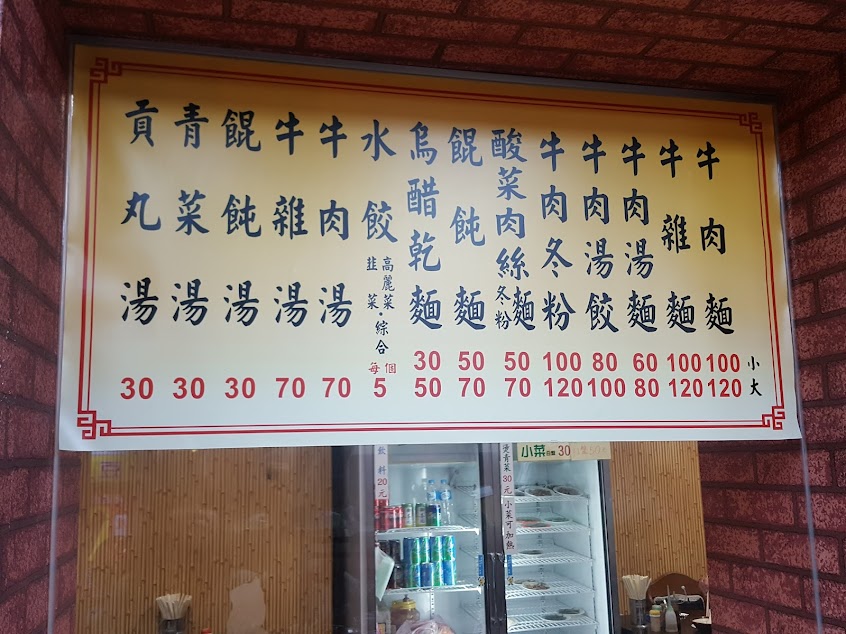 牛肉麵 100 120
牛雜麵 100 120
牛肉湯麵 60 80
牛肉湯餃 80 100
牛肉冬粉 100 120
酸菜肉絲麵冬粉 50 70
餛飩麵 50 70
烏醋乾麵 30 50
水餃 高麗菜韭菜·綜合 每個 5
牛肉湯 70
牛雜湯 70
餛飩湯 30
青菜湯 30
貢丸湯 30
小
大
飲料20元
燙青菜30元
小菜可加熱
小菜 30